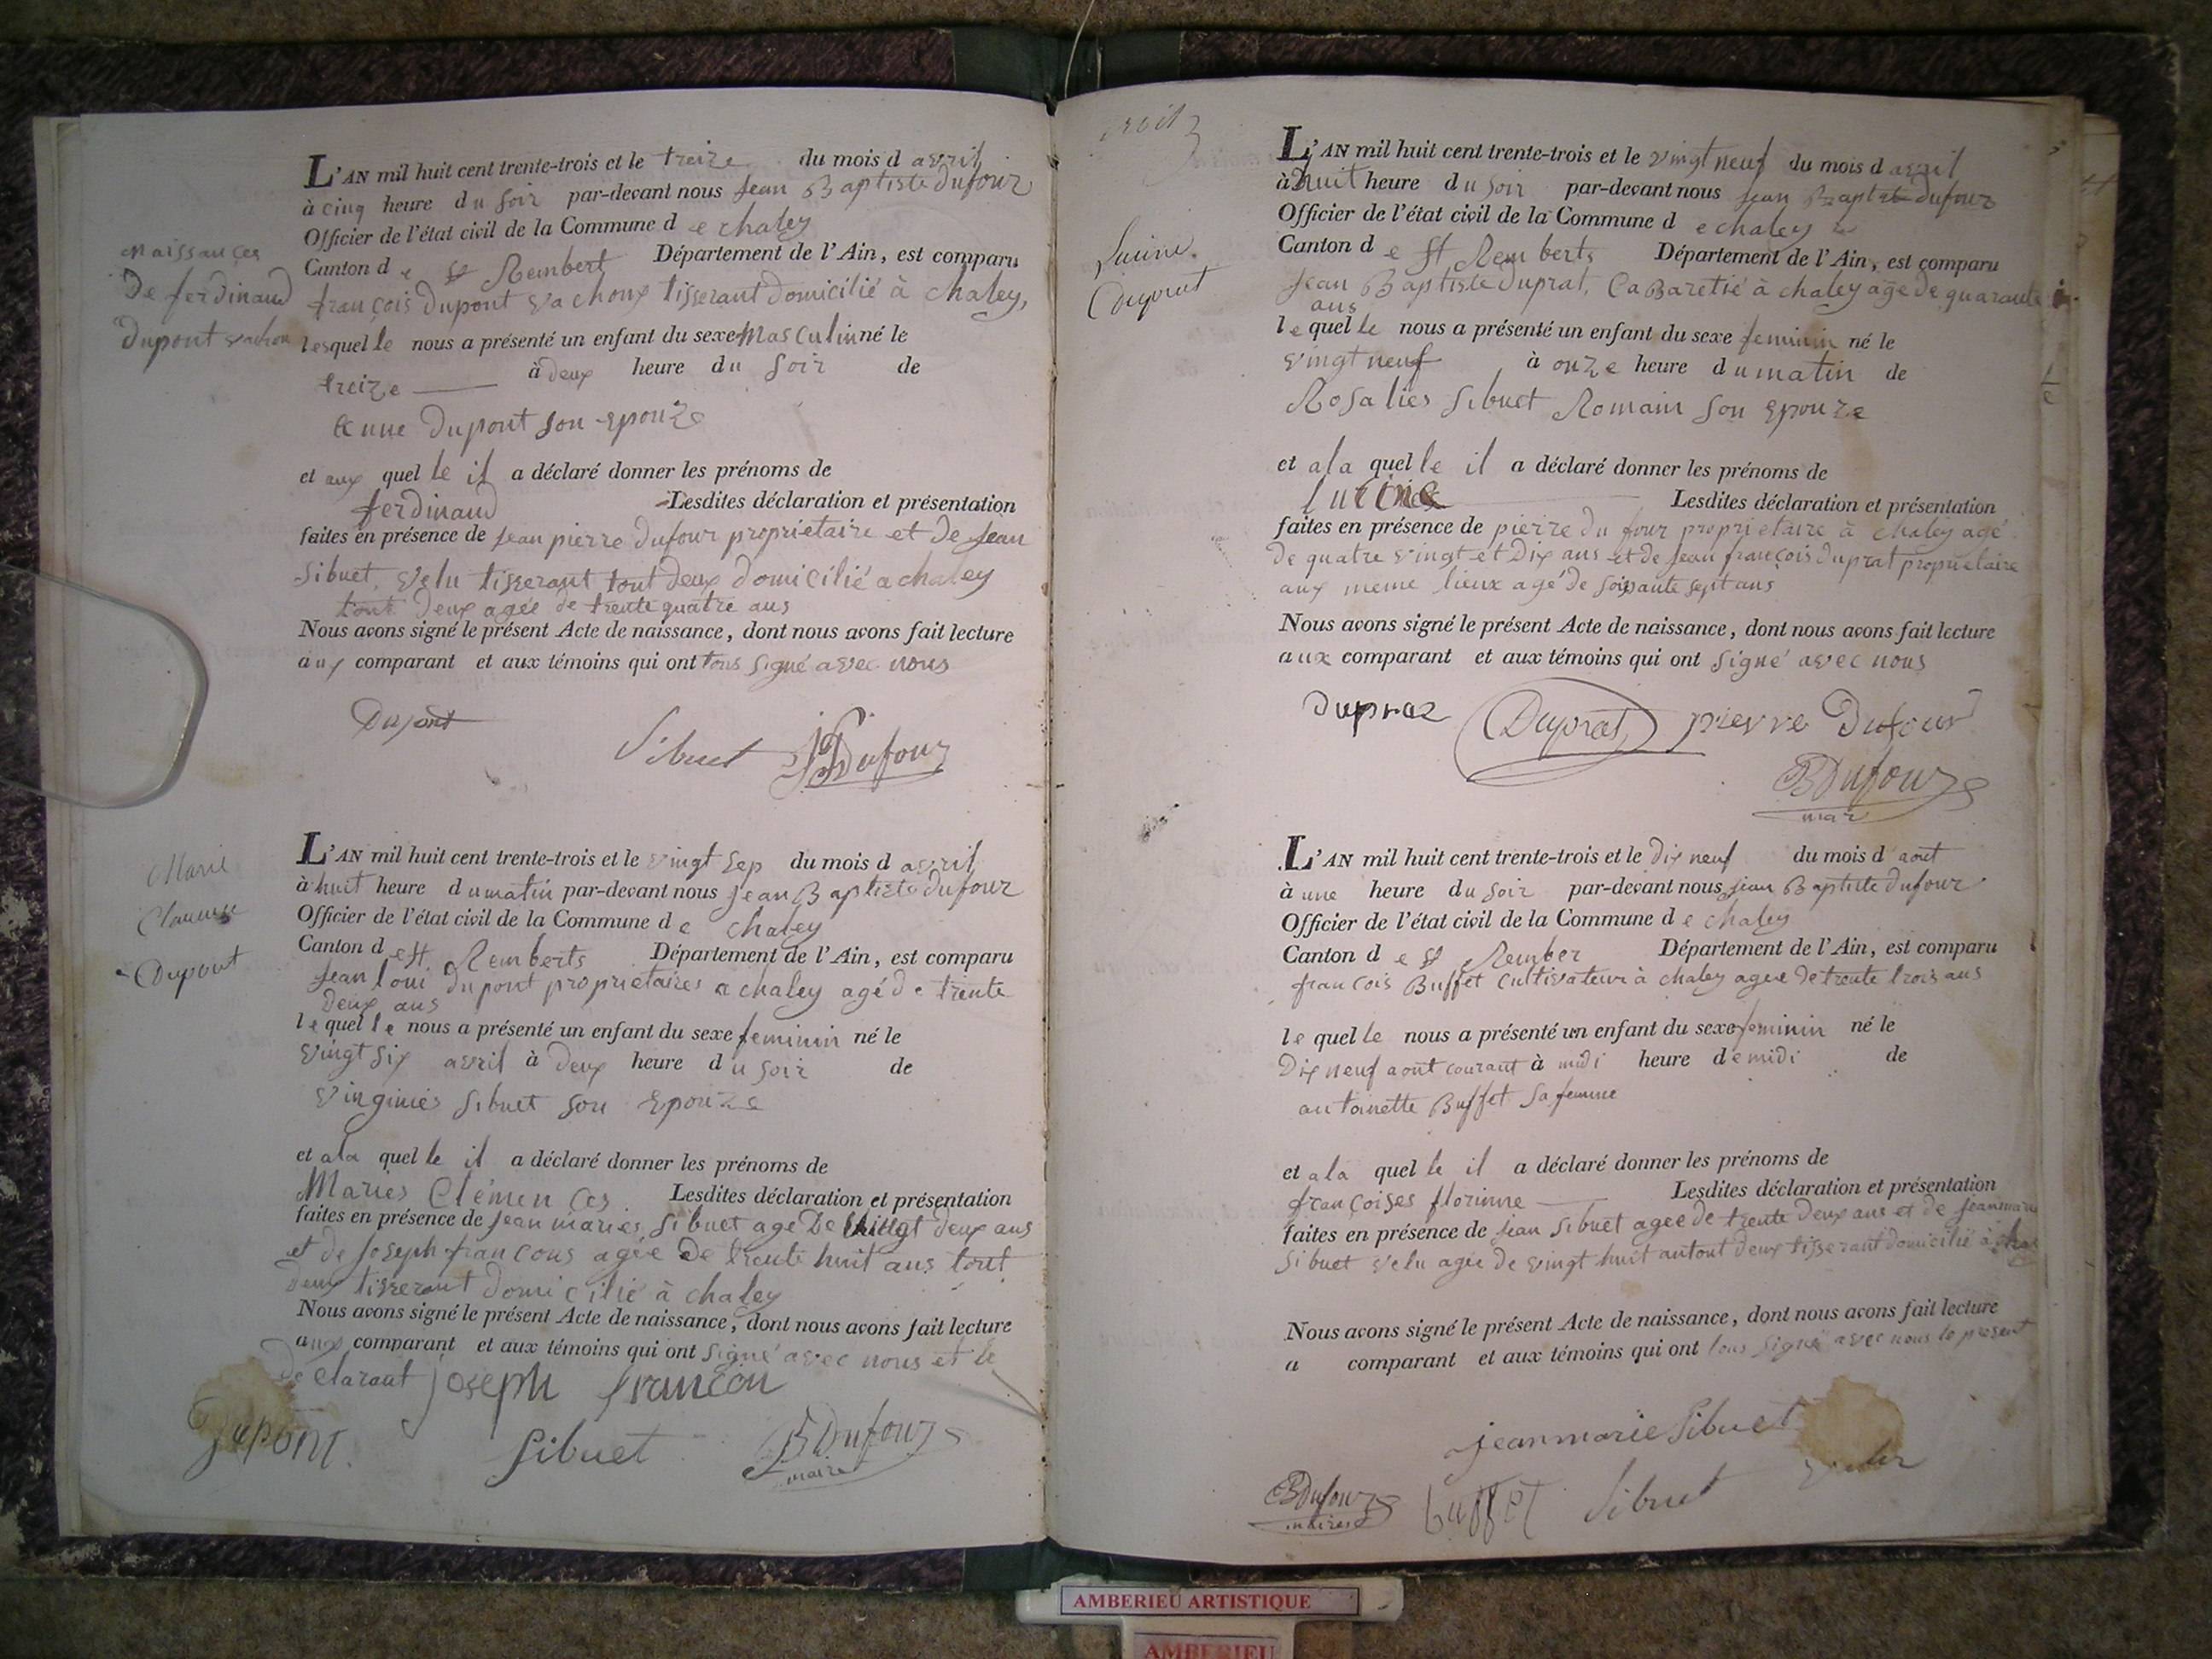 Naissances
De ferdinand
Dupont vachon
L'AN mil huit cent trente-trois et le treize du mois d avril
à cinq heure du soir par-devant nous jean Baptiste dufour
Officier de l'état civil de la Commune d e chaley
Canton d e St Rembert Département de l'Ain, est comparu
françois dupont vachoux tisserant domicilié à chaley,
lesquel le nous a présenté un enfant du sexe Masculin né le
treize à deux heure du soir de
Dupont son epouze
et aux quel le il a déclaré donner les prénoms de
ferdinand Lesdites déclaration et présentation
faites en présence de jean pierre dufour propriétaire et de jean
sibuet, velu tisserant tout deux domicilié a chaley
tout deux agée de trente quatre ans
Nous avons signé le présent Acte de naissance, dont nous avons fait lecture
aux comparant et aux témoins qui ont tous signé avec nous
Dupont
Sibuet Dufour
Marie
Clemense
Dupont
L'AN mil huit cent trente-trois et le vingt sep du mois d avril
à huit heure du matin par-devant nous jean Baptiste dufour
Officier de l'état civil de la Commune d e chaley
Canton d e St Remberts Département de l'Ain, est comparu
jean loui dupont proprietaires a chaley agé de trente
Deux ans
le quel le nous a présenté un enfant du sexe feminin né le
vingt six avril à deux heure du soir de
vinginies sibuet son epouze
et ala quel le il a déclaré donner les prénoms de
Maries Clémen ces Lesdites déclaration et présentation
faites en présence de jean maries, sibuet age De vingt deux ans
et de joseph francons agée De trente huit ans tout
deux tisserant domicilié à chaley
Nous avons signé le présent Acte de naissance, dont nous avons fait lecture
aux comparant et aux témoins qui ont signé avec nous et le
declarant joseph francon
Dupont Sibuet BDufour
maire
Dupont
L'AN mil huit cent trente-trois et le vingt neuf du mois d avril
à huit heure du soir par-devant nous jean Baptiste dufour
Officier de l'état civil de la Commune d e chaley
Canton d e St Remberts Département de l'Ain, est comparu
jean Baptiste duprat, CaBaretié à chaley age de quarante
ans
le quel le nous a présenté un enfant du sexe feminin né le
vingt neuf à onze heure du matin de
Rosalies sibuet Romain son epouze
et ala quel le il a déclaré donner les prénoms de
Lesdites déclaration et présentation
faites en présence de pierre du four proprietaire à chaley agé
de quatre vingt et Dix ans et de jean françois duprat proprietaire
aux meme lieux agé de soixante sept ans
Nous avons signé le présent Acte de naissance, dont nous avons fait lecture
aux comparant et aux témoins qui ont signé avec nous
dupraz Duprat pierre Dufour
BDufour
mair
L'AN mil huit cent trente-trois et le dix neuf du mois d aout
à une heure du soir par-devant nous jean Baptiste dufour
Officier de l'état civil de la Commune d e chaley
Canton d e St Rember Département de l'Ain, est comparu
francois Buffet Cultivateur à chaley agée de trente trois ans
le quel le nous a présenté un enfant du sexe feminin né le
Dix neuf aout courant à midi heure de midi de
antoinette Buffet sa femme
et ala quel le il a déclaré donner les prénoms de
françoises florinne Lesdites déclaration et présentation
faites en présence de jean sibuet agee de trente deux ans et de jeanmarie
sibuet velu agée de vingt huit an tout deux tisserant domicilié à
Nous avons signé le présent Acte de naissance, dont nous avons fait lecture
a comparant et aux témoins qui ont tous signé avec nous le present
jeanmarie Sibuet
BDufour buffet Sibuet
maires
AMBERIEU ARTISTIQUE
AMBERIEU